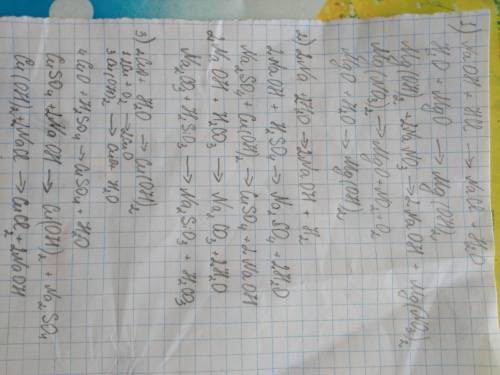 1) NaOH + HCl → NaCl + H2O
H2O + MgO → Mg(OH)2
Mg(OH)2 + 2NaNO3 → 2NaOH + Mg(NO3)2
Mg(NO3)2 → MgO + NO2 + O2
MgO + H2O → Mg(OH)2
2) 2Na + 2H2O → 2NaOH + H2
2NaOH + H2SO4 → Na2SO4 + 2H2O
Na2SO4 + Cu(OH)2 → CuSO4 + 2NaOH
2NaOH + H2CO3 → Na2CO3 + 2H2O
Na2CO3 + H2SO3 → Na2SO3 + H2CO3
3) H2O → Cu(OH)2
2Cu + O2 → 2CuO
3 Cu(OH)2 → CuO + H2O
4 CuO + H2SO4 → CuSO4 + H2O
CuSO4 + 2NaOH → Cu(OH)2 + Na2SO4
Cu(OH)2 + 2NaCl → CuCl2 + 2NaOH